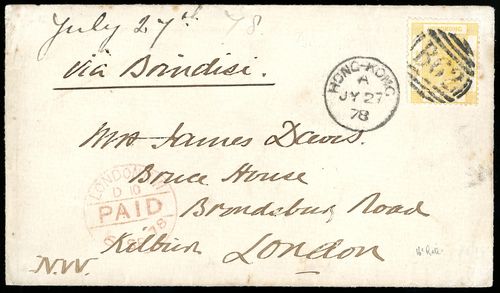 July 27th 78.
via Brindisi.
HONG-KONG
A
JY 27
78
B62
Mrs James Davis.
Bruce House
Brondesbury Road
Kilburn London
N.W.
LONDON
PAID
78